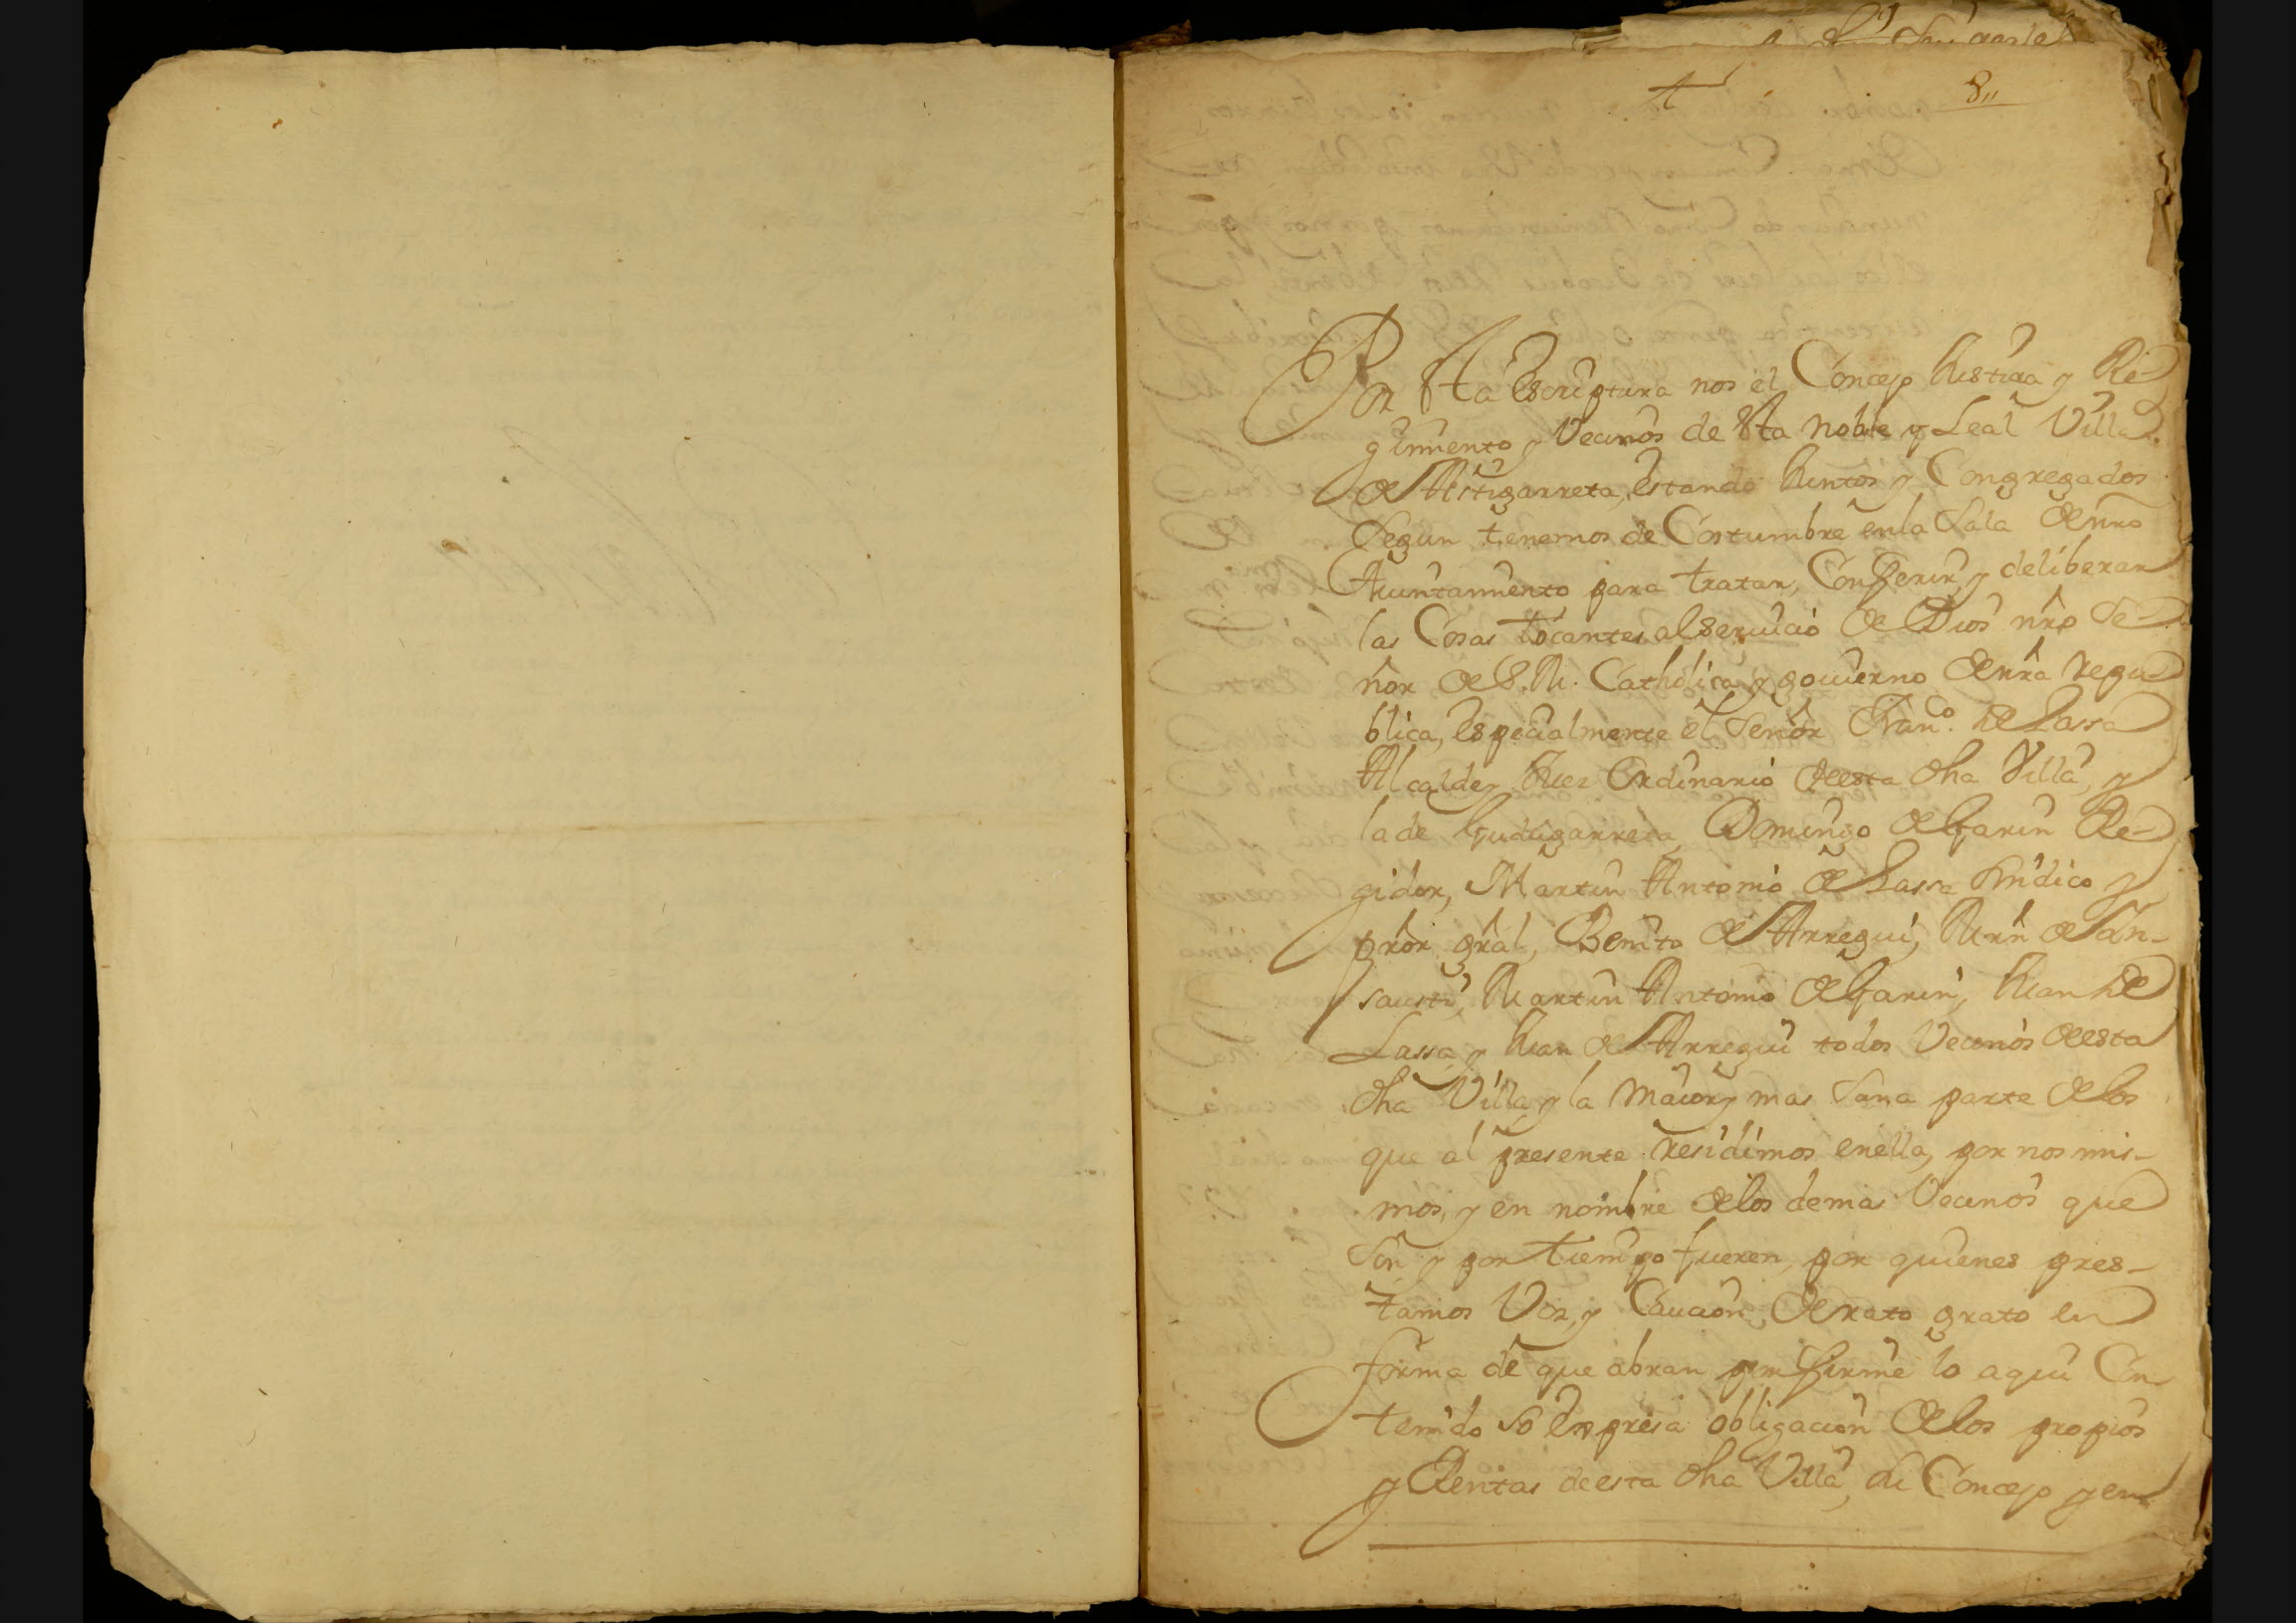 8,,
Por Sta Escriptura nos el Concejo Justizia y Re-
gimiento y Vecinos de Sta noble y Leal Villa
de Astigarreta, estando Juntos y Congregados
Segun tenemos de Costumbre en la Sala de nro
Aiuntamiento para tratar, Conferir, y deliberar
las Cosas tocantes al Seruicio de Dios nro Se-
ñor de S. M. Catholica y gouierno de nra repu
blica, especialmente el Señor Franco. de Lassa
Alcalde y Juez Ordinario de esta dha Villa, y
la de Gudugarreta, Domingo de Garin Re-
gidor, Martin Antonio de Lassa Sindico y
pror gral, Benito de Arregui, Mrn de In-
sausti, Martin Antonio de Garin, Juan de
Lassa y Juan de Arregui todos Vecinos de esta
dha Villa y la maior y mas Sana parte de los
que al presente residimos en ella, por nos mis-
mos, y en nombre de los demas Vecinos que
Son y por tiempo fueren, por quienes pres-
tamos Voz, y Caucion de rato grato en
forma de que abran por firme lo aqui Con
tenido So expresa obligacion de los propios
y Rentas de esta dha Villa, su Concejo y en